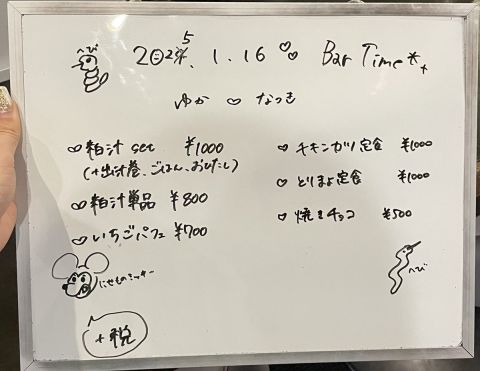 へび
2025. 1. 16 ♡♡ Bar Time*+
ゆか ♡ なつき
♡粕汁 set ¥1000
(+出汁巻、ごはん、おひたし)
♡粕汁単品 ¥800
♡いちごパフェ ¥700
♡チキンカツ定食 ¥1000
♡とりまよ定食 ¥1000
♡焼きチョコ ¥500
にせものミッキー
へび
+税